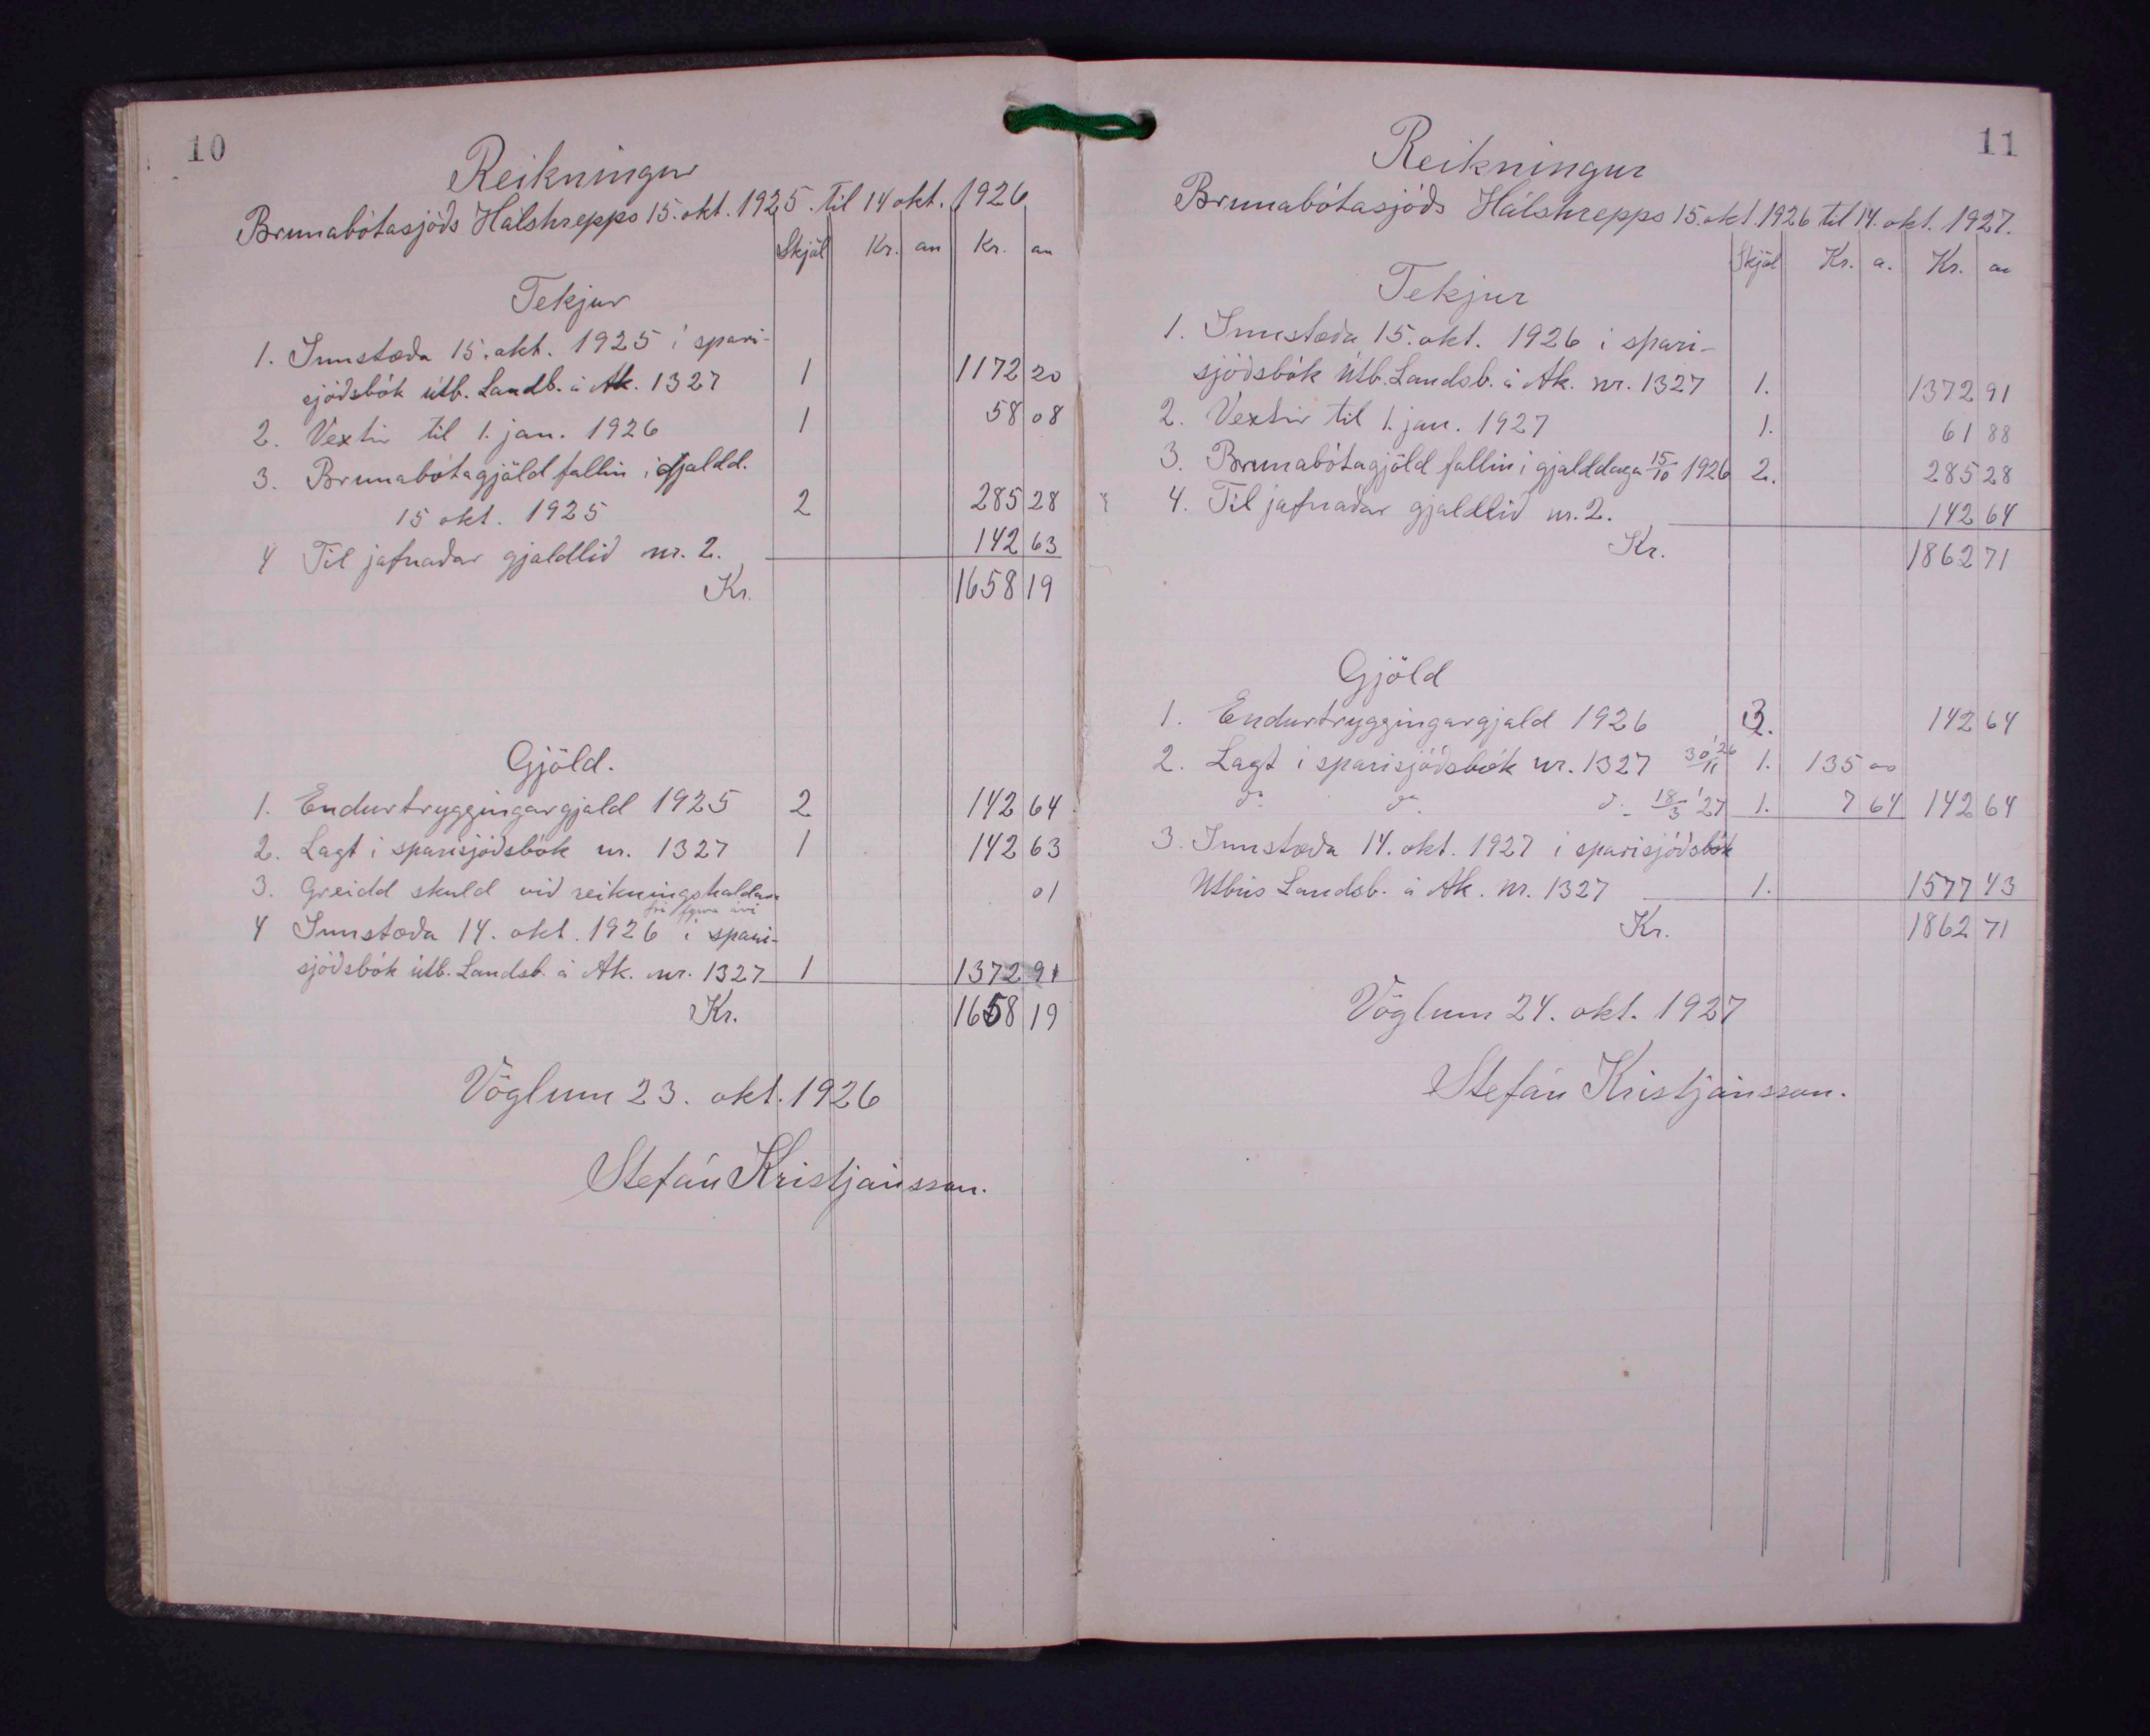 10
Reikningur
Brunabótasjóðs Hálshrepps 15. okt. 1925. til 14 okt. 1926
Skjöl Kr. au Kr. au
Tekjur
1. Innstæða 15. okt. 1925 í spari-
sjóðsbók útb. Landb. á Ak. 1327 1 1172 20
2. Vextir til 1. jan. 1926 1 58 08
3. Brunabótagjöld fallin í gjaldd.
15 okt. 1925 2 285 28
4 Til jafnaðar gjaldlið nr. 2. 142 63
Kr. 1658 19
Gjöld.
1. Endurtryggingargjald 1925 2 142 64
2. Lagt í sparisjóðsbók nr. 1327 1 142 63
3. Greidd skuld við reikningshaldara 01
frá fyrra ári
4 Innstæða 14. okt. 1926 í spari-
sjóðsbók útb. Landsb. á Ak. nr. 1327 1 1372 91
Kr. 1658 19
Vöglum 23. okt. 1926
Stefán Kristjánsson.
11
Reikningur
Brunabótasjóðs Hálshrepps 15. okt. 1926 til 14. okt. 1927.
Skjöl Kr. a. Kr. au
Tekjur
1. Innstæða 15. okt. 1926 í spari-
sjóðsbók Útb. Landsb. á Ak. nr. 1327 1. 1372 91
2. Vextir til 1. jan. 1927 1. 61 88
3. Brunabótagjöld fallin í gjalddaga 15/10 1926 2. 285 28
4. Til jafnaðar gjaldlið nr. 2. 142 64
Kr. 1862 71
Gjöld
1. Endurtryggingargjald 1926 3. 142 64
2. Lagt í sparisjóðsbók nr. 1327 30/11 '26 1. 135 00
do do do 18/3 '27 1. 7 64 142 64
3. Innstæða 14. okt. 1927 í sparisjóðsbók
Útbús Landsb. á Ak. nr. 1327 1. 1577 43
Kr. 1862 71
Vöglum 24. okt. 1927
Stefán Kristjánsson.